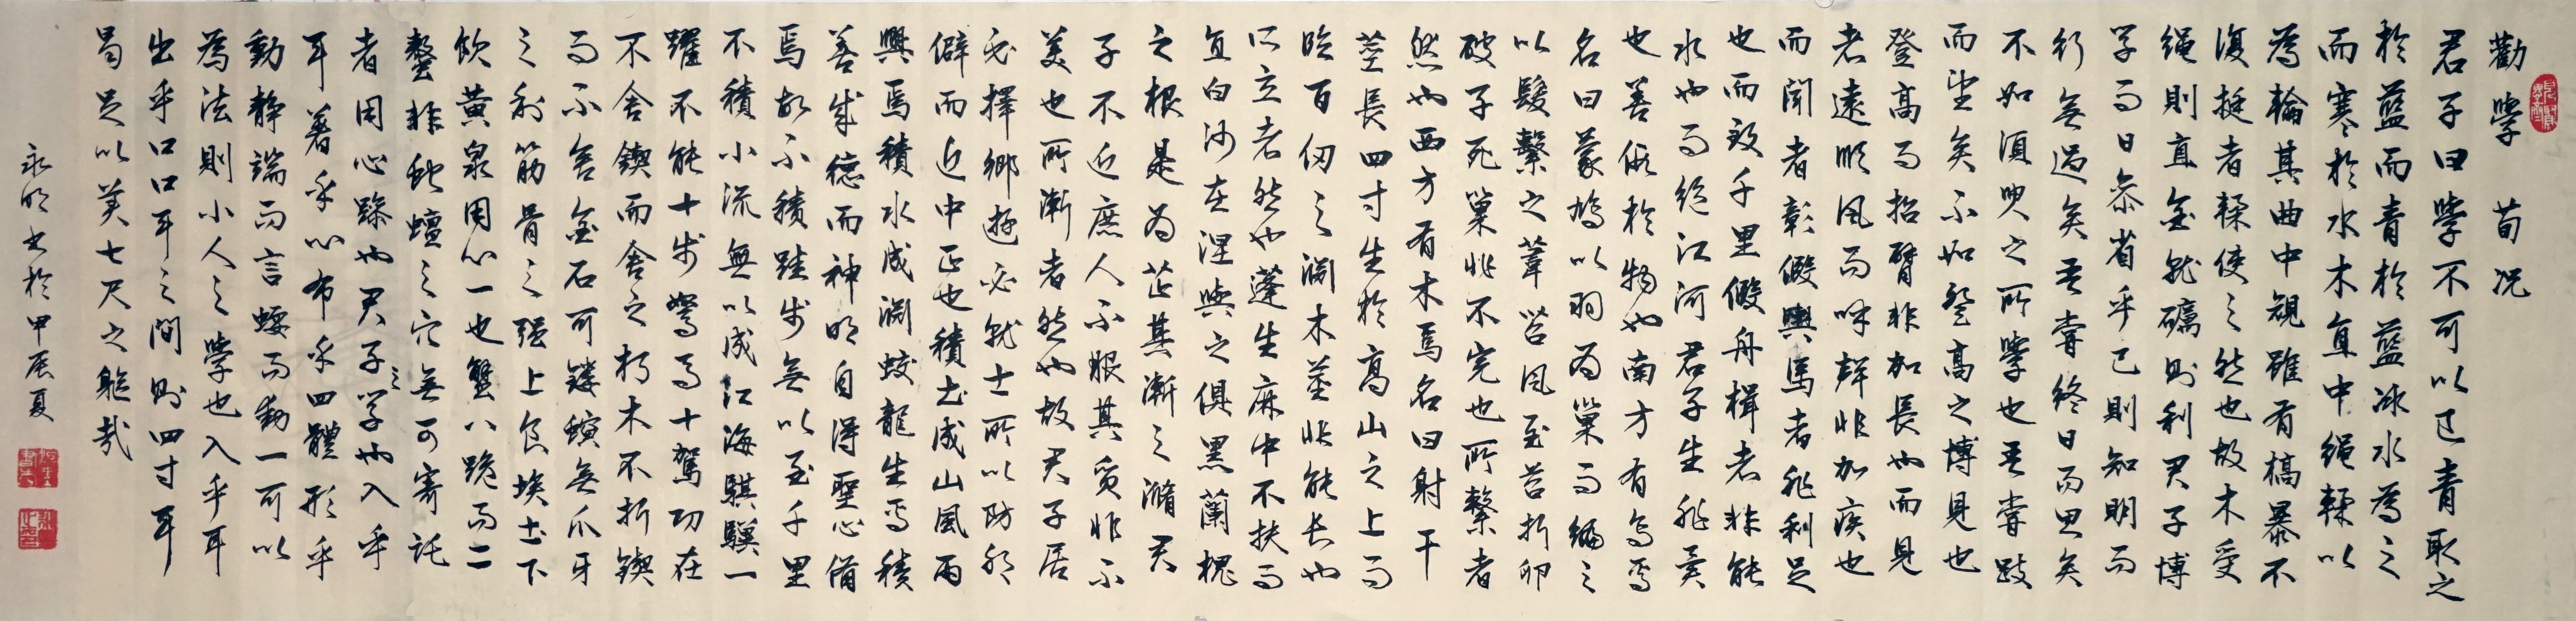 勸學 荀況
君子曰學不可以已青取之
於藍而青於藍冰水為之
而寒於水木直中繩輮以
為輪其曲中規雖有槁暴不
復挺者輮使之然也故木受
繩則直金就礪則利君子博
學而日參省乎已則知明而
行無過矣吾嘗終日而思矣
不如須臾之所學也吾嘗跂
而望矣不如登高之博見也
登高而招臂非加長也而見
者遠順風而呼聲非加疾也
而聞者彰假輿馬者非利足
也而致千里假舟楫者非能
水也而絕江河君子生非異
也善假於物也南方有鳥焉
名曰蒙鳩以羽為巢而編之
以髮繫之葦苕風至苕折卵
破子死巢非不完也所繫者
然也西方有木焉名曰射干
莖長四寸生於高山之上而
臨百仞之淵木莖非能長也
所立者然也蓬生麻中不扶而
直白沙在涅與之俱黑蘭槐
之根是為芷其漸之滫君
子不近庶人不服其質非不
美也所漸者然也故君子居
必擇鄉遊必就士所以防邪
僻而近中正也積土成山風雨
興焉積水成淵蛟龍生焉積
善成德而神明自得聖心備
焉故不積跬步無以至千里
不積小流無以成江海騏驥一
躍不能十步駑馬十駕功在
不舍鍥而舍之朽木不折鍥
而不舍金石可鏤螾無爪牙
之利筋骨之強上食埃土下
飲黃泉用心一也蟹八跪而二
螯非蛇蟺之穴無可寄託
者用心躁也君子之學也入乎
耳著乎心布乎四體形乎
動靜端而言蝡而動一可以
為法則小人之學也入乎耳
出乎口口耳之間則四寸耳
曷足以美七尺之軀哉
永明書於甲辰夏